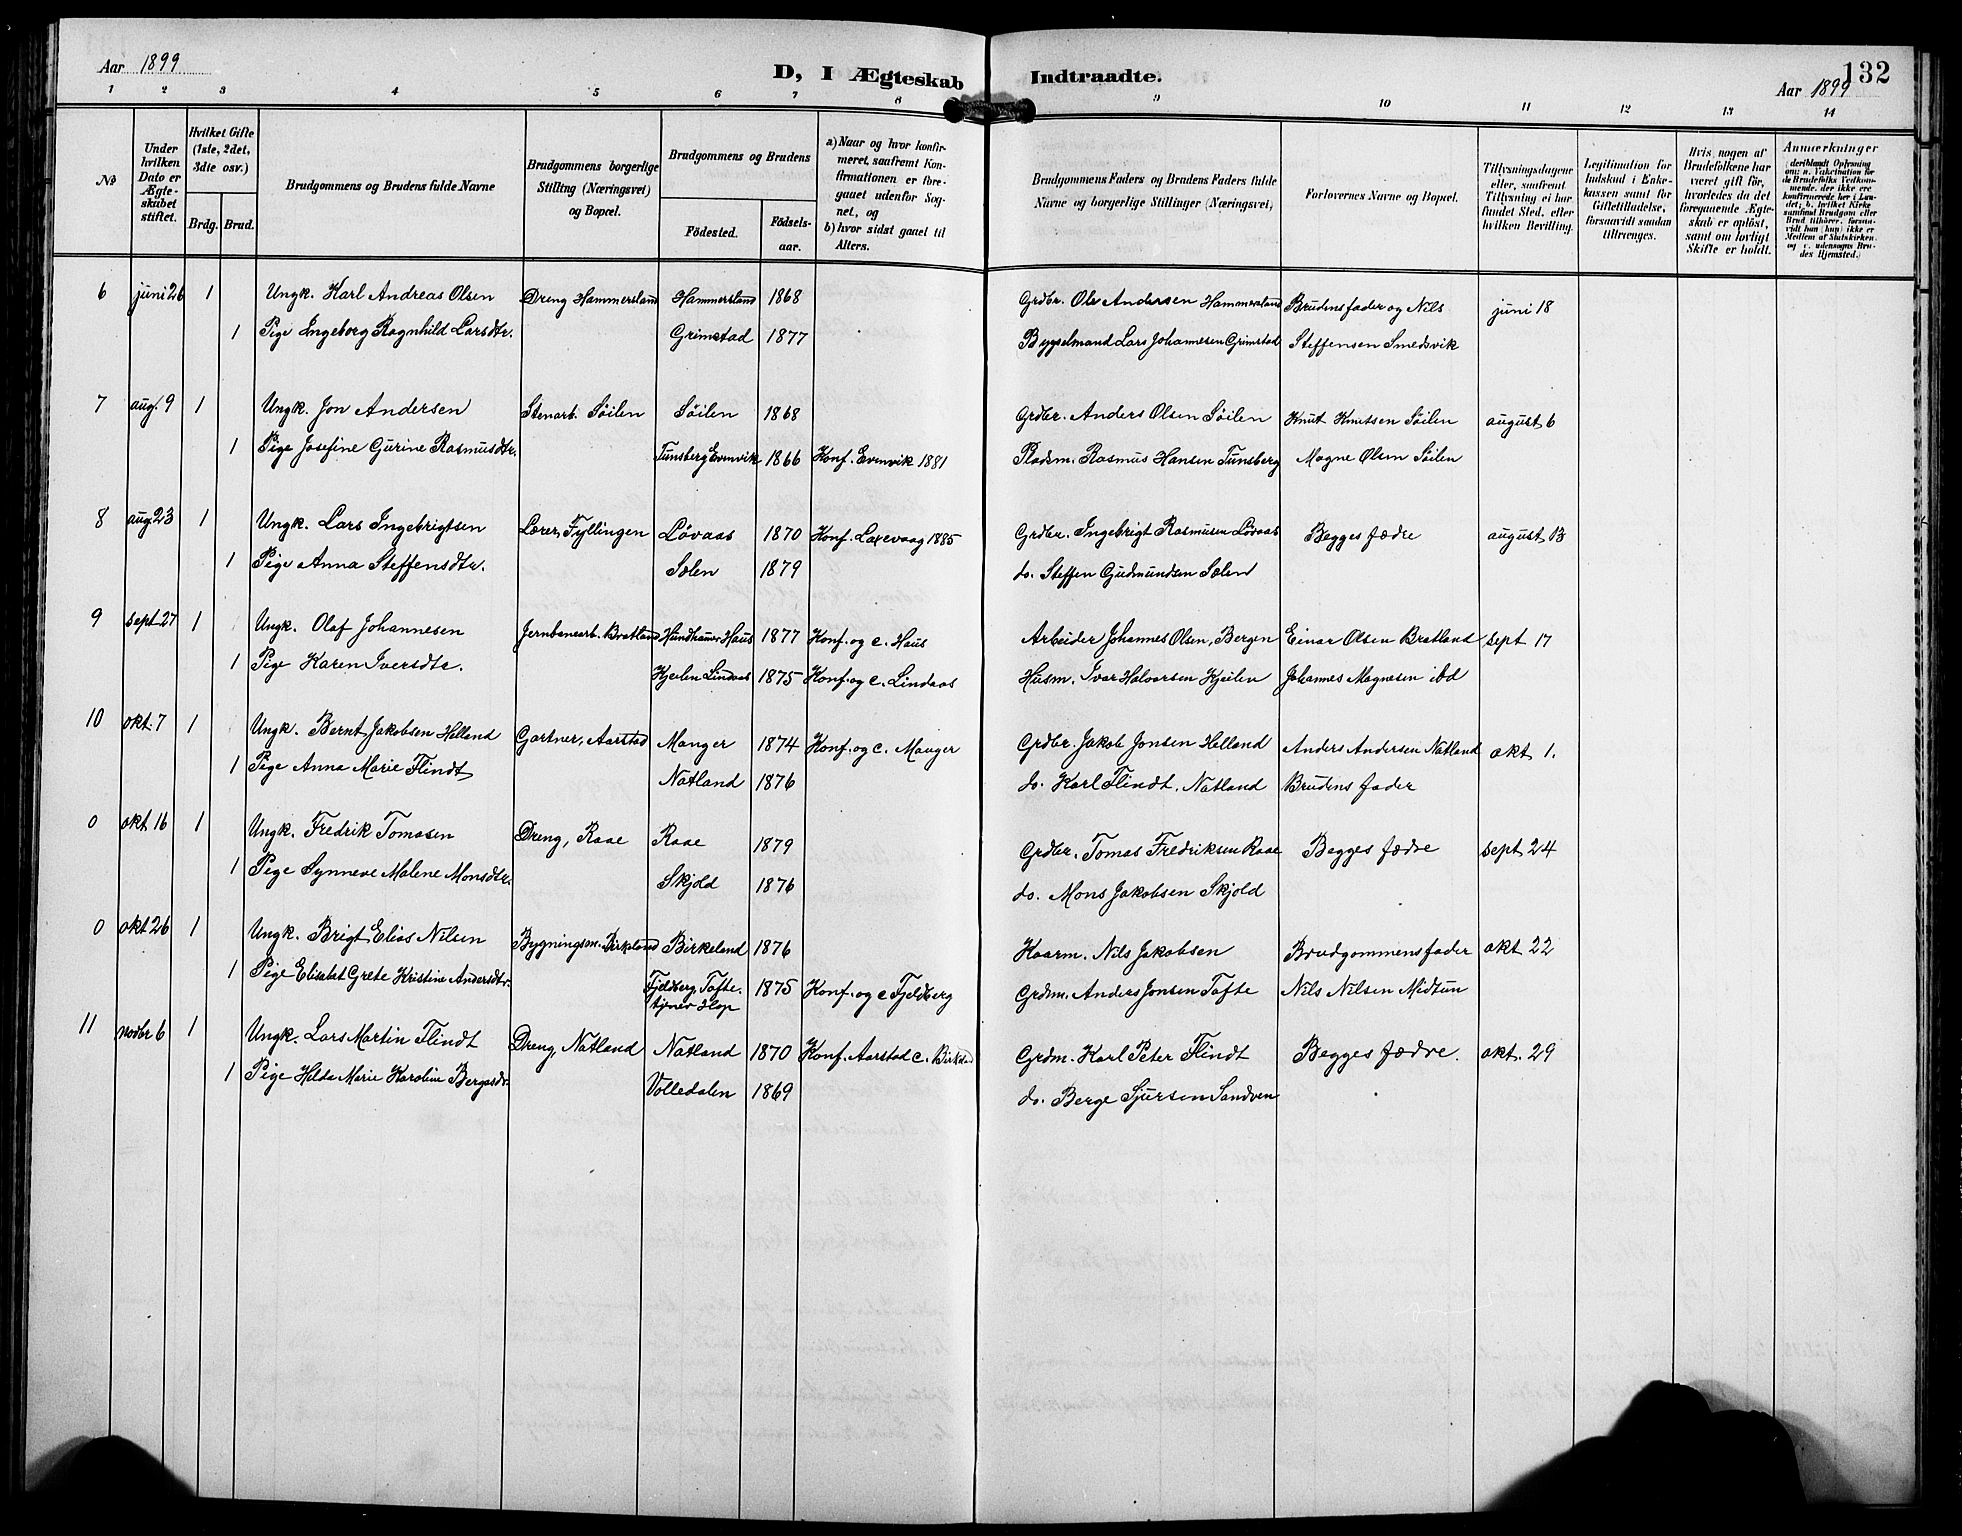 Aar 1899
D, I Ægteskab Indtraadte.
132
Aar 1899
1 2 3 4 5 6 7 8 9 10 11 12 13 14
No
Under hvilken Dato er Ægteskabet stiftet.
Hvilket Gifte (1ste, 2det, 3die osv.)
Brdg. Brud.
Brudgommens og Brudens fulde Navne
Brudgommens borgerlige Stilling (Næringsvei) og Bopæl.
Brudgommens og Brudens
Fødested. Fødselsaar.
a) Naar og hvor konfirmeret, saafremt Konfirmationen er foregaaet udenfor Sognet, og
b) hvor sidst gaaet til Alters.
Brudgommens Faders og Brudens Faders fulde Navne og borgerlige Stillinger (Næringsvei)
Forlovernes Navne og Bopæl.
Tillysningsdagene eller, saafremt Tillysning ei har fundet Sted, efter hvilken Bevilling.
Legitimation for Indskud i Enkekassen samt for Giftetilladelse, forsaavidt saadan tiltrænges.
Hvis nogen af Brudefolkene har været gift før, hvorledes da det foregaaende Ægteskab er opløst, samt om lovligt Skifte er holdt.
Anmærkninger
(deriblandt Oplysning om: a. Vakcination for de Brudefolks Vedkommende, der ikke ere konfirmerede her i Landet; b. hvilket Kirkesamfund Brudgom eller Brud tilhører, forsaavidt han (hun) ikke er Medlem af Statskirken, og c. udensogns Brudes Hjemsted.)
6 juni 26 1 Ungk. Karl Andreas Olsen Dreng Hammersland Hammersland 1868 Grdbr. Ole Andersen Hammersland Brudens fader og Nils juni 18
1 Pige Ingeborg Ragnhild Larsdtr. Grimstad 1877 Bygselmand Lars Johannesen Grimstad Steffensen Smedsvik
7 aug. 9 1 Ungk. Jon Andersen Stenarb. Søilen Søilen 1868 Grdbr. Anders Olsen Søilen Knut Knutsen Søilen august 6
1 Pige Josefine Gurine Rasmusdtr. Tunsberg Evenvik 1866 Konf. Evenvik 1881 Pladsm. Rasmus Hansen Tunsberg Magne Olsen Søilen
8 aug 23 1 Ungk. Lars Ingebrigtsen Lærer, Fyllingen Løvaas 1870 Konf. Laxevaag 1885 Grdbr. Ingebrigt Rasmusen Løvaas Begges fædre august 13
1 Pige Anna Steffensdtr. Sælen 1879 do. Steffen Gudmundsen Sælen
9 sept 27 1 Ungk. Olaf Johannesen Jernbanearb. Bratland Hundhauer Haus 1877 Konf. og c. Haus Arbeider Johannes Olsen, Bergen Einar Olsen Bratland sept 17
1 Pige Karen Iversdtr. Kjeilen Lindaas 1875 Konf. og c. Lindaas Husm. Ivar Halvorsen Kjeilen Johannes Magnesen ibd
10 okt. 7 1 Ungk. Bernt Jakobsen Helland Gartner, Aarstad Manger 1874 Konf. og c. Manger Grdbr. Jakob Jonsen Helland Anders Andersen Natland okt 1.
1 Pige Anna Marie Flindt Natland 1876 do. Karl Flindt, Natland Brudens fader
0 okt 16 1 Ungk. Fredrik Tomasen Dreng, Raae Raae 1879 Grdbr. Tomas Fredriksen Raae Begges fædre sept 24
1 Pige Synneve Malene Monsdtr. Skjold 1876 do. Mons Jakobsen Skjold
0 okt 26 1 Ungk. Brigt Elias Nilsen Bygningsm. Birkeland Birkeland 1876 Kaarm. Nils Jakobsen Brudgommens fader okt 22
1 Pige Elisabet Grete Kristine Andersdtr. Fjeldberg, Tofte. tjener Hop 1875 Konf. og c Fjeldberg Grdm. Anders Jonsen Tofte Nils Nilsen Midtun
11 novbr 6 1 Ungk. Lars Martin Flindt Dreng, Natland Natland 1870 Konf. Aarstad c. Birkld Grdm. Karl Peter Flindt Begges fædre. okt. 29
1 Pige Hilda Marie Karoline Bergesdr. Volledalen 1869 do. Berge Sjursen Sandven